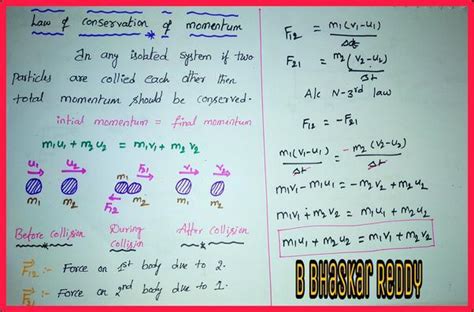 Law of conservation of momentum
In any isolated system if two
particles are collied each other then
total momentum should be conserved.
intial momentum = final momentum
m₁u₁ + m₂u₂ = m₁v₁ + m₂v₂
u₁ u₂ m₁ F₂₁ v₁ v₂
m₁ m₂ F₁₂ m₂ m₁ m₂
Before collision During collision After collision
F₁₂ :- Force on 1st body due to 2.
F₂₁ :- Force on 2nd body due to 1.
F₁₂ = m₁(v₁-u₁)/Δt
F₂₁ = m₂(v₂-u₂)/Δt
A/c N-3rd law
F₁₂ = -F₂₁
m₁(v₁-u₁)/Δt = -m₂(v₂-u₂)/Δt
m₁v₁ - m₁u₁ = -m₂v₂ + m₂u₂
m₁v₁ + m₂v₂ = m₁u₁ + m₂u₂
m₁u₁ + m₂u₂ = m₁v₁ + m₂v₂
B BHASKAR REDDY